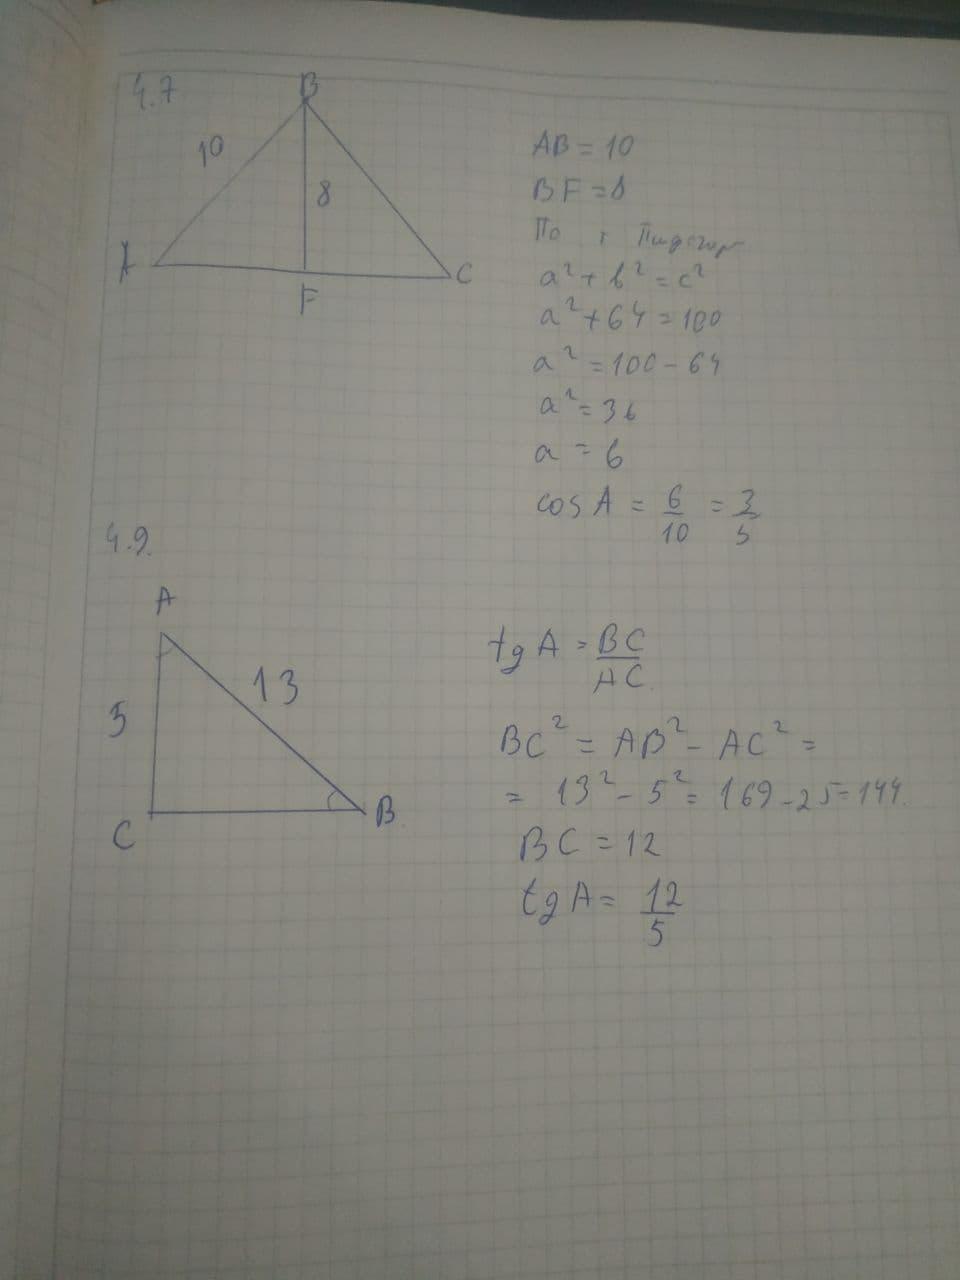 4.7
B
10
8
A
F
C
AB = 10
BF = 8
По т
a² + b² = c²
a² + 64 = 100
a² = 100 - 64
a² = 36
a = 6
cos A = 6/10 = 3/5
4.9.
A
5
13
C
B
tg A = BC/AC
BC² = AB² - AC² =
= 13² - 5² = 169 - 25 = 144.
BC = 12
tg A = 12/5